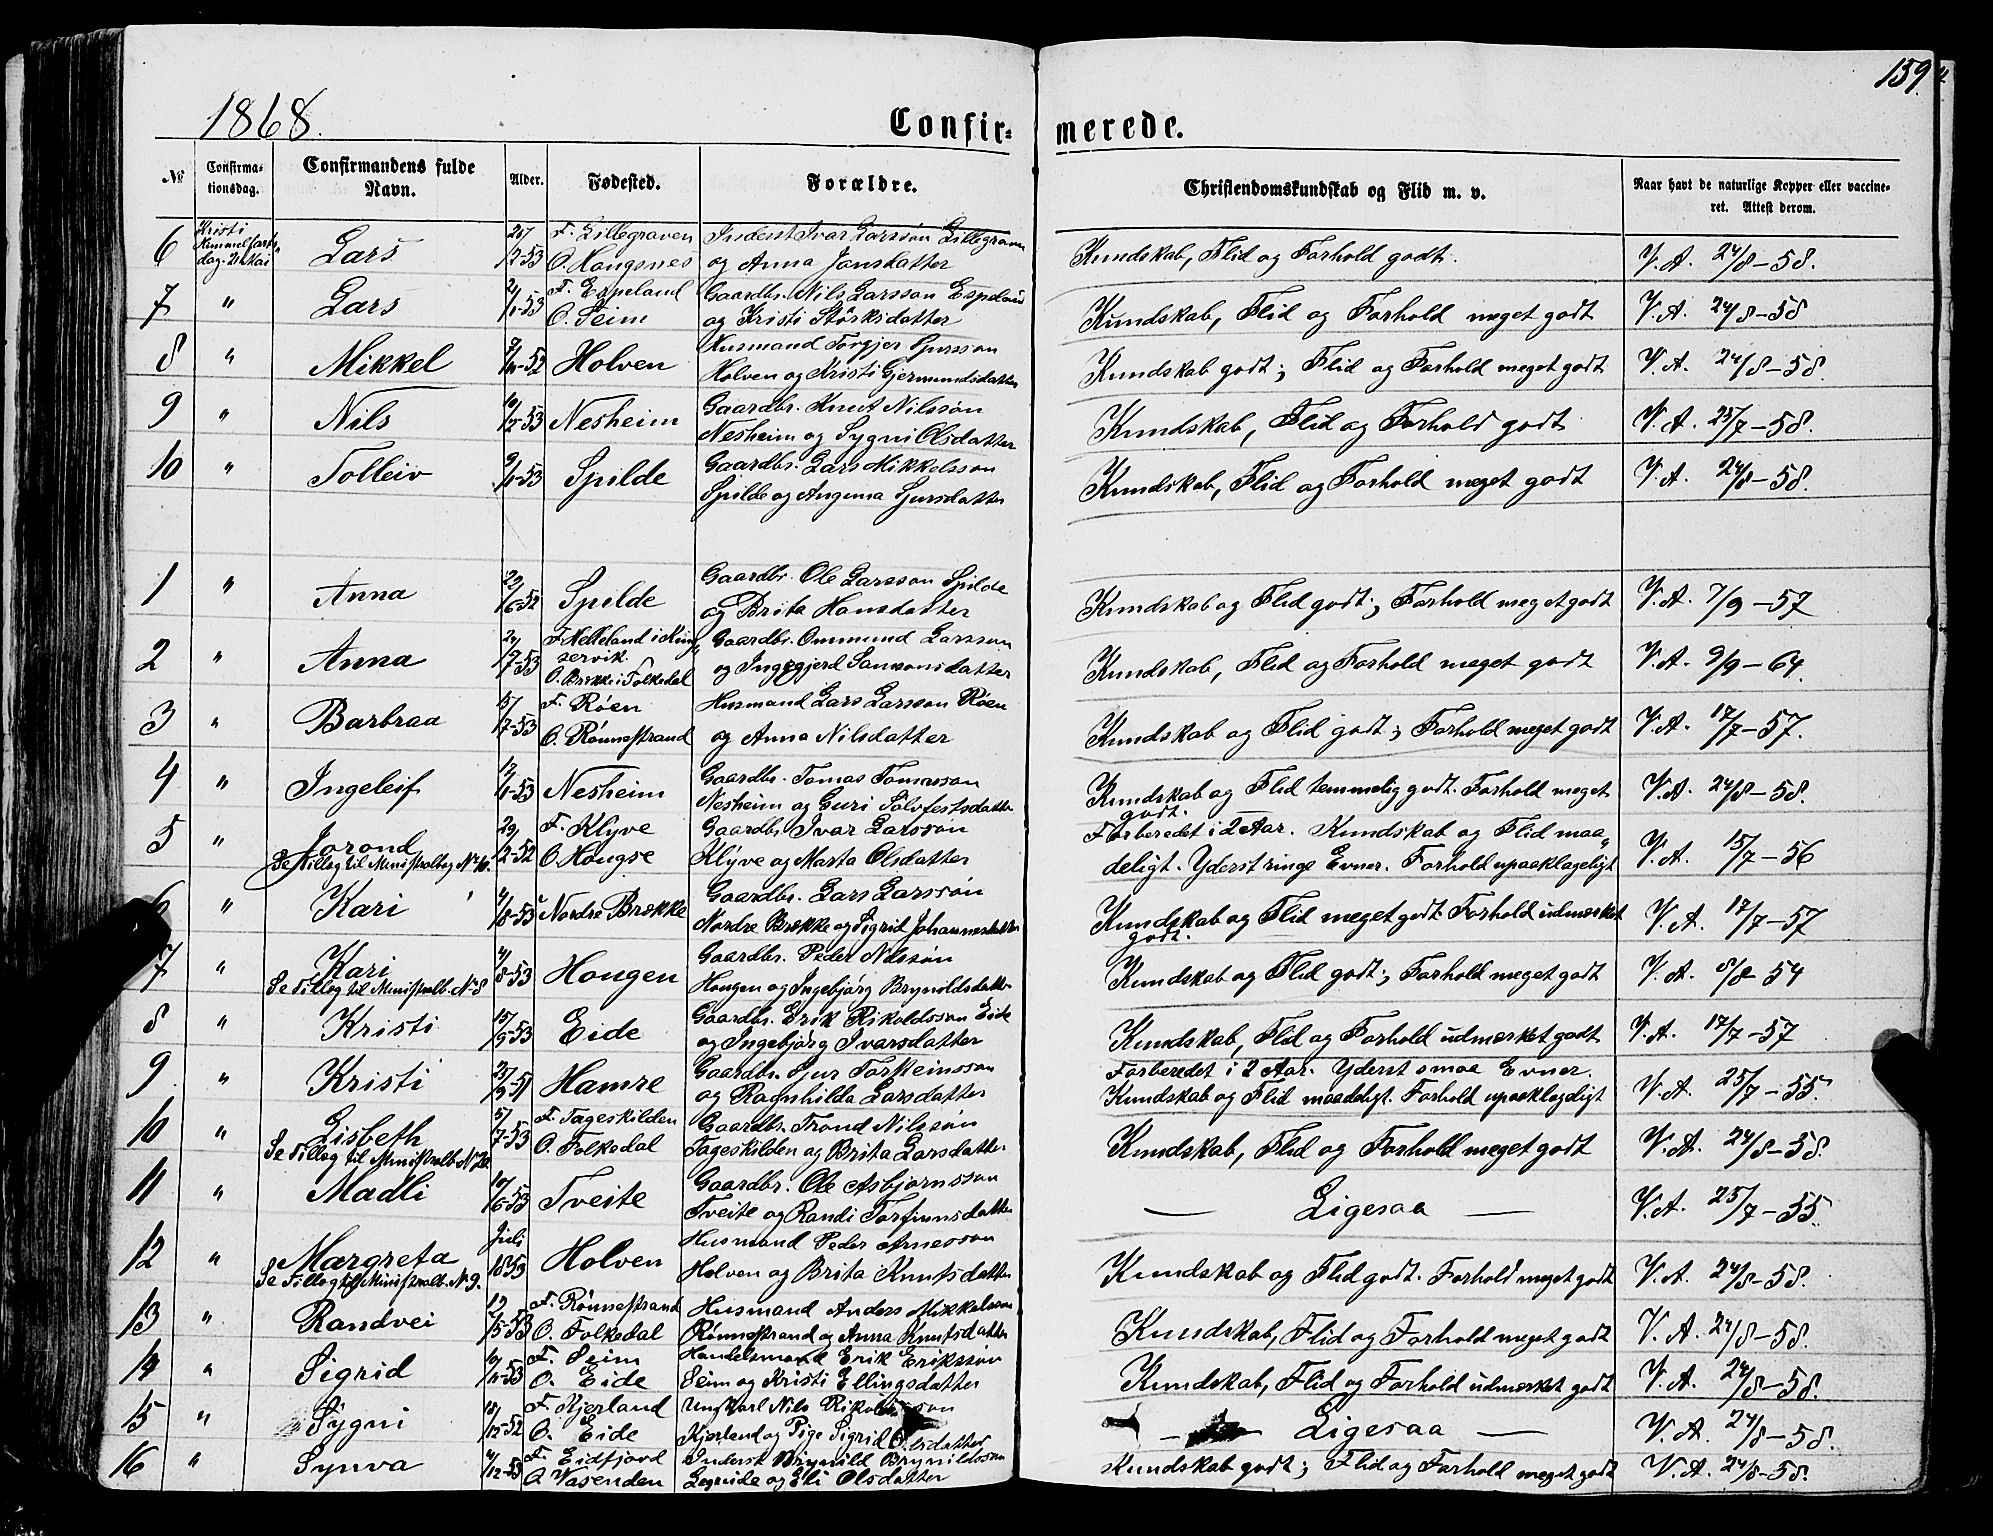 159
1868.
Confir- merede.
№
Confirma-
tionsdag.
Confirmandens fulde
Navn.
Alder.
Fødested.
Forældre.
Christendomskundskab og Flid m. v.
Naar havt de naturlige Kopper eller vaccine-
ret. Attest derom.
6 Kristi Himmelfarts-dag. 21 Mai Lars 26/12-53 F. Lillegraven Inderst Ivar Larsson Lillegraven
O. Haugsnes og Anna Jansdatter Kundskab, Flid og Forhold godt. V. A. 24/8-58.
7 " Lars 2/1-53 F. Espeland Gaardbr. Nils Larsson Espeland
O. Seim og Kristi Störksdatter Kundskab, Flid og Forhold meget godt V. A. 24/8-58
8 " Mikkel Holven Husmand Torgjer Sjursson
Holven og Kristi Gjermundsdatter Kundskab godt; Flid og Forhold meget godt V. A. 24/8-58.
9 " Nils 10/2-53 Nesheim Gaardbr. Knut Nilsson
Nesheim og Sygni Olsdatter Kundskab, Flid og Forhold godt V. A. 25/7-58.
10 " Tolleiv 9/1-53 Spilde Gaardbr. Lars Mikkelsson
Spilde og Angerna Sjursdatter Kundskab, Flid og Forhold meget godt V. A. 24/8-58.
1 " Anna 29/6-52 Spilde Gaardbr. Ole Larsson Spilde
og Brita Hansdatter Kundskab og Flid godt; Forhold meget godt V. A. 7/9-57
2 " Anna 24/7-53 F. Nelleland i Kin-
servik.
O. Brække i Folkedal Gaardbr. Ommund Larsson
og Ingegjerd Samsonsdatter Kundskab, Flid og Forhold meget godt V. A. 9/9-64.
3 " Barbraa F. Røen Husmand Lars Larsson Røen
O. Rønnestrand og Anna Nilsdatter Kundskab og Flid godt; Forhold meget godt V. A. 17/7-57.
4 " Ingeleif 12/1-53 Nesheim Gaardbr. Tomas Tomasson
Nesheim og Guri Sølvfestsdatter Kundskab og Flid temmelig godt. Forhold meget
godt. V. A. 24/8-58.
5 " Jorond 29/12-52 F. Klyve Gaardbr. Ivar Larsson
Se Tillæg til Ministralbog No 10.
O. Hougse Klyve og Marta Olsdatter Forberedet i 2 Aar. Kundskab og Flid maa-
deligt. Yderst ringe Evner. Forhold upaaklageligt V. A. 15/7-56
6 " Kari Nordre Brække Gaardbr. Lars Larsson
Nordre Brække og Sigrid Johannesdatter Kundskab og Flid meget godt. Forhold udmærket
godt. V. A. 17/7-57
7 " Kari 4/8-53 Hougen Gaardbr. Peder Nilsson
Se Tillæg til Ministralb. No 8
Hougen og Ingebjørg Brynoldsdatter Kundskab og Flid godt; Forhold meget godt V. A. 8/8-54
8 " Kristi 15/9-53 Eide Gaardbr. Erik Rikoldsson Eide
og Ingebjørg Ivarsdatter Kundskab, Flid og Forhold udmærket godt V. A. 17/7-57
9 " Kristi Hamre Gaardbr. Sjur Torsteinsson
og Ragnhilda Larsdatter Forberedet i 2 Aar. Yderst smaa Evner.
Kundskab og Flid maadeligt. Forhold upaaklageligt V. A. 25/7-55.
10 " Lisbeth 5/7-53 F. Tageskilden Gaardbr. Trond Nilsson
Se Tillæg til Ministralb. No 20.
O. Folkedal Tageskilden og Brita Larsdatter Kundskab, Flid og Forhold meget godt V. A. 24/8-58.
11 " Madli 10/6-53 Tveite Gaardbr. Ole Asbjørnsson
Tveite og Randi Torfinnsdatter — Ligesaa — V. A. 25/7-55.
12 " Margreta Juli 1853 Holven Husmand Peder Arnesson
Se Tillæg til Ministralb. No 9.
Holven og Brita Knutsdatter Kundskab og Flid godt. Forhold meget godt V. A. 24/8-58.
13 " Randvei 12/5-53 F. Rønnestrand Husmand Anders Mikkelsson
O. Folkedal Rønnestrand og Anna Knutsdatter Kundskab, Flid og Forhold meget godt V. A. 24/8-58.
14 " Sigrid F. Seim Handelsmand Erik Eriksson
O. Eide Seim og Kristi Ellingsdatter Kundskab, Flid og Forhold udmærket godt V. A. 24/8-58.
15 " Sygni 18/12-52 F. Kjerland Ungkarl Nils Rikoldsson
O. Eide Kjerland og Pige Sigrid Olsdatter — Ligesaa — V. A. 24/8-58.
16 " Synva 4/12-53 F. Eidfjord Inderst Brynild Brynildsson
O. Vasenden Legreide og Eli Olsdatter Kundskab godt; Flid og Forhold meget godt V. A. 24/8-58.